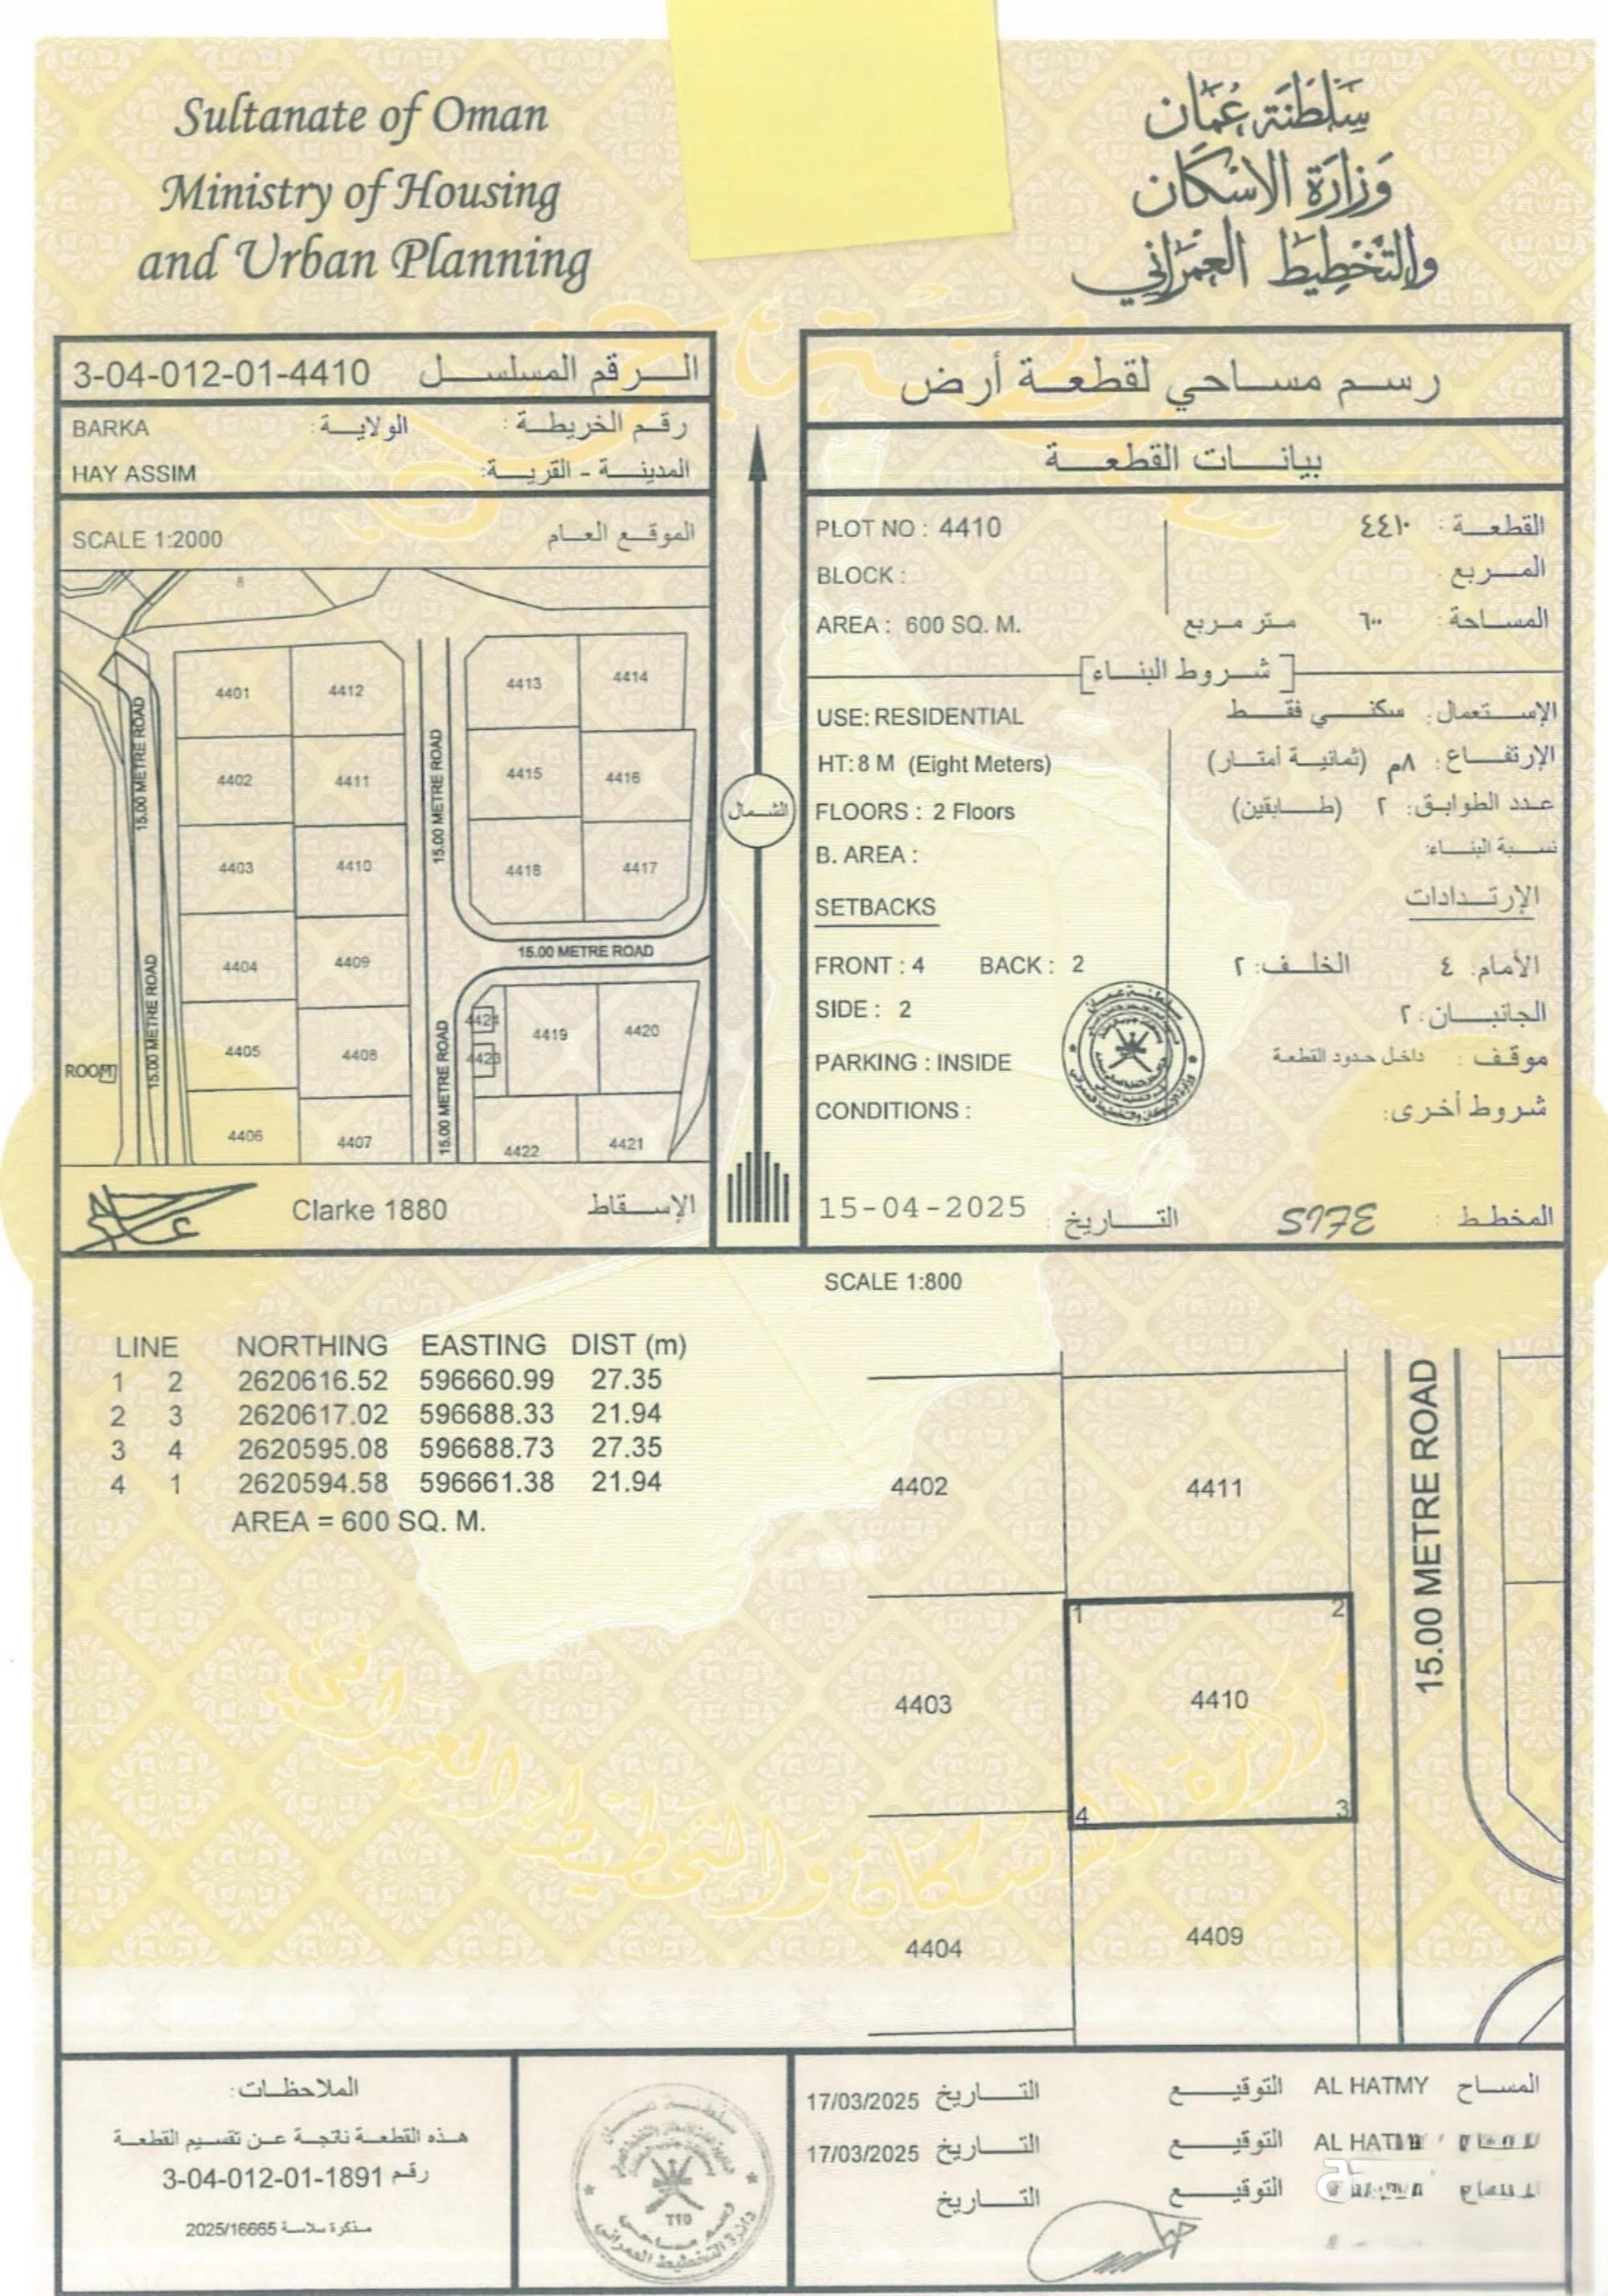 Sultanate of Oman
Ministry of Housing
and Urban Planning
سلطنة عمان
وزارة الاسكان
والتخطيط العمراني
3-04-012-01-4410 الرقم المسلسل
BARKA الولاية: رقم الخريطة:
HAY ASSIM المدينة - القرية:
SCALE 1:2000 الموقع العام
8
4401 4412 4413 4414
4402 4411 4415 4416
4403 4410 4418 4417
4404 4409
4405 4408 4424 4419 4420
4423
4406 4407 4422 4421
15.00 METRE ROAD
15.00 METRE ROAD
15.00 METRE ROAD
15.00 METRE ROAD
15.00 METRE ROAD
ROOM
Clarke 1880 الإسقاط
الشمال
رسم مساحي لقطعة أرض
بيانات القطعة
PLOT NO : 4410 القطعة : ٤٤١٠
BLOCK : المربع
AREA : 600 SQ. M. المساحة : ٦٠٠ متر مربع
[شروط البناء]
USE: RESIDENTIAL الإستعمال: سكني فقط
HT: 8 M (Eight Meters) الإرتفاع: ٨م (ثمانية أمتار)
FLOORS : 2 Floors عدد الطوابق: ٢ (طابقين)
B. AREA : نسبة البناء:
SETBACKS الإرتدادات
FRONT : 4 BACK : 2 الأمام: ٤ الخلف: ٢
SIDE : 2 الجانبان: ٢
PARKING : INSIDE موقف : داخل حدود القطعة
CONDITIONS : شروط أخرى:
15-04-2025 التاريخ : SIFE المخطط :
SCALE 1:800
LINE NORTHING EASTING DIST (m)
1 2 2620616.52 596660.99 27.35
2 3 2620617.02 596688.33 21.94
3 4 2620595.08 596688.73 27.35
4 1 2620594.58 596661.38 21.94
AREA = 600 SQ. M.
4402 4411
15.00 METRE ROAD
1 2
4403 4410
4 3
4404 4409
وزارة الاسكان والتخطيط العمراني
الملاحظات:
هذه القطعة ناتجة عن تقسيم القطعة
رقم 3-04-012-01-1891
مذكرة سلاسة 2025/16665
المساح AL HATMY التوقيع التاريخ 17/03/2025
AL HAT التوقيع التاريخ 17/03/2025
التوقيع التاريخ